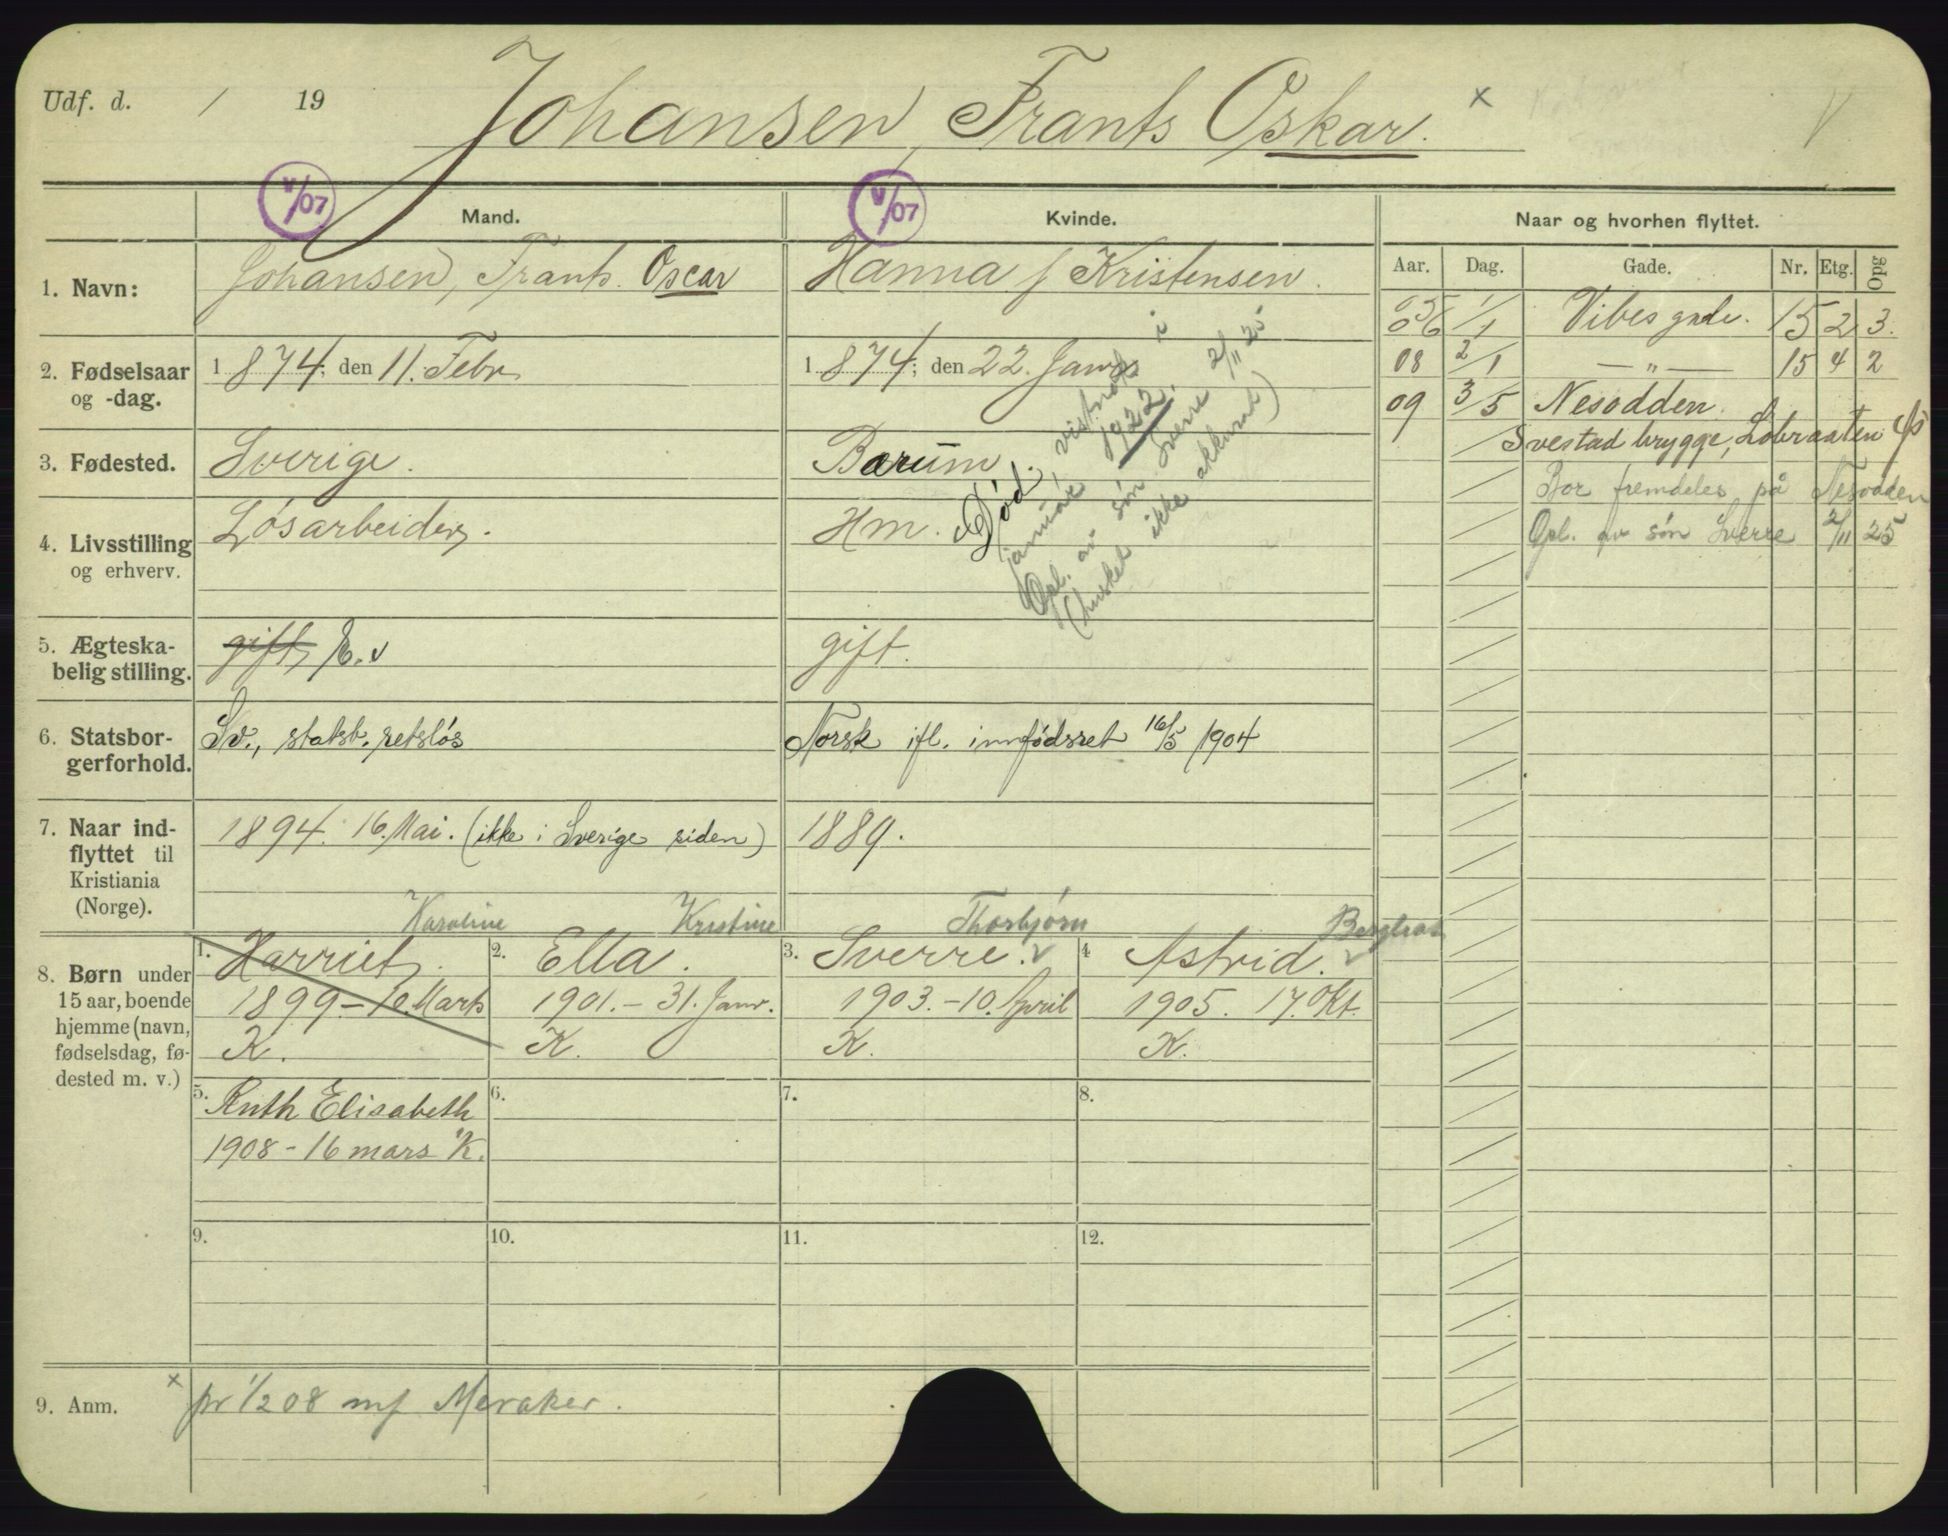 Udf. d. / 19
Johansen, Frants Oskar. x
V/07
V/07
Mand.
Kvinde.
Naar og hvorhen flyttet.
Aar. Dag. Gade. Nr. Etg. Opg
1. Navn:
Johansen, Frants. Oscar
Hanna f Kristensen.
2. Fødselsaar
og -dag.
1874; den 11. Febr
1874; den 22. Janr.
3. Fødested.
Sverige.
Bærum
4. Livsstilling
og erhverv.
Løsarbeider.
Hm.
Død, vistnok i
januar 1922.
Opl. av søn Sverre 2/11 25
(husket ikke akkurat)
5. Ægteska-
belig stilling.
gift E.v
gift.
6. Statsbor-
gerforhold.
Sv., statsb. retsløs
Norsk ifl. innfødsret 16/5 1904
7. Naar ind-
flyttet til
Kristiania
(Norge).
1894. 16. Mai. (ikke i Sverige siden)
1889.
8. Børn under
15 aar, boende
hjemme (navn,
fødselsdag, fø-
dested m. v.)
Karoline
1. Harriet.
1899 - 10. Marts
K.
Kristine
2. Ella.
1901. - 31. Janr.
K.
Thorbjørn
3. Sverre. v
1903. - 10. April
K.
4 Astrid. v
1905. 17. Okt.
K.
5. Ruth Elisabeth
1908 - 16 mars K.
6.
7.
8.
9.
10.
11.
12.
9. Anm.
x pr 1/2 08 mf Meraker.
06 1/1 Vibes gade. 15 2 3.
08 2/1 — " — 15 4 2
09 3/5 Nesodden.
Svestad brygge,
Bor fremdeles på Nesodden
Opl. av søn Sverre 2/11 25